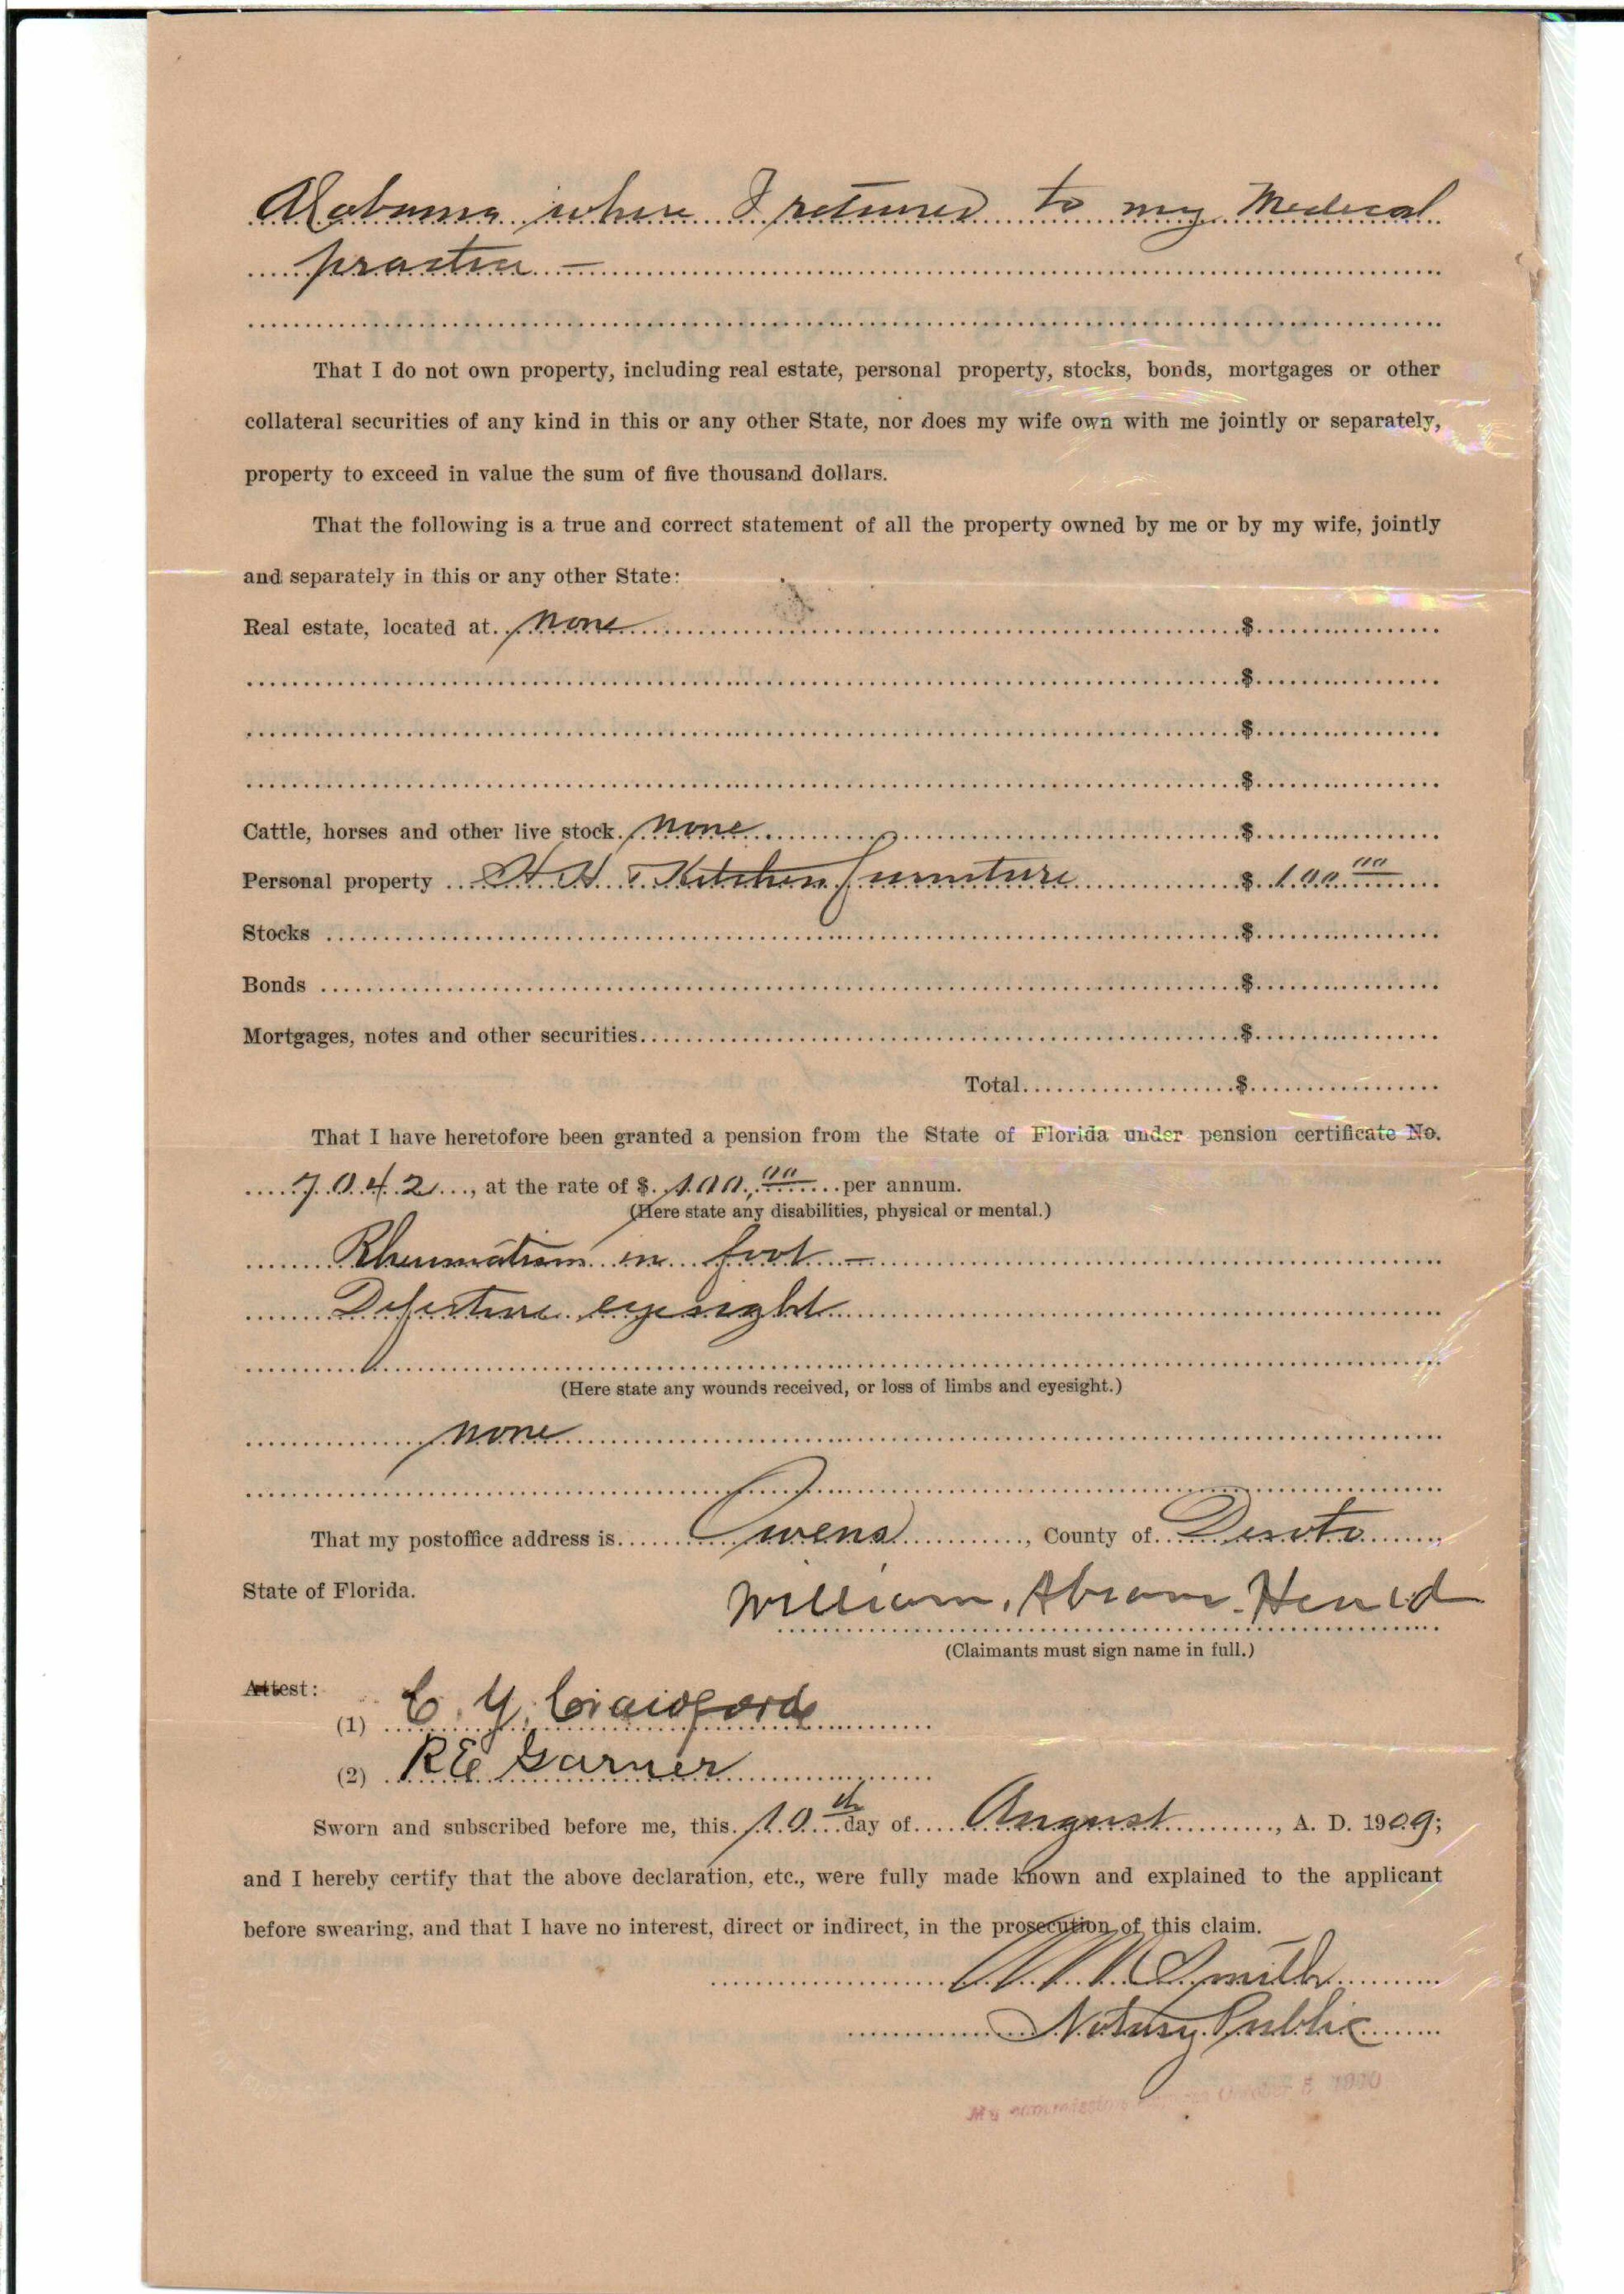 Alabama where I returned to my Medical
practice —
That I do not own property, including real estate, personal property, stocks, bonds, mortgages or other
collateral securities of any kind in this or any other State, nor does my wife own with me jointly or separately,
property to exceed in value the sum of five thousand dollars.
That the following is a true and correct statement of all the property owned by me or by my wife, jointly
and separately in this or any other State:
Real estate, located at none $
$
$
$
Cattle, horses and other live stock none $
Personal property H H & Kitchen furniture $ 100 00
Stocks $
Bonds $
Mortgages, notes and other securities $
Total $
That I have heretofore been granted a pension from the State of Florida under pension certificate No.
7042, at the rate of $ 100.00 per annum.
(Here state any disabilities, physical or mental.)
Rheumatism in foot —
Defective eyesight
(Here state any wounds received, or loss of limbs and eyesight.)
none
That my postoffice address is Owens, County of Desoto,
State of Florida.
William Abram
(Claimants must sign name in full.)
Attest:
(1) C. Y. Crawford
(2) R E Garner
Sworn and subscribed before me, this 10th day of August, A. D. 1909;
and I hereby certify that the above declaration, etc., were fully made known and explained to the applicant
before swearing, and that I have no interest, direct or indirect, in the prosecution of this claim.
Smith
Notary Public
My commission expires October